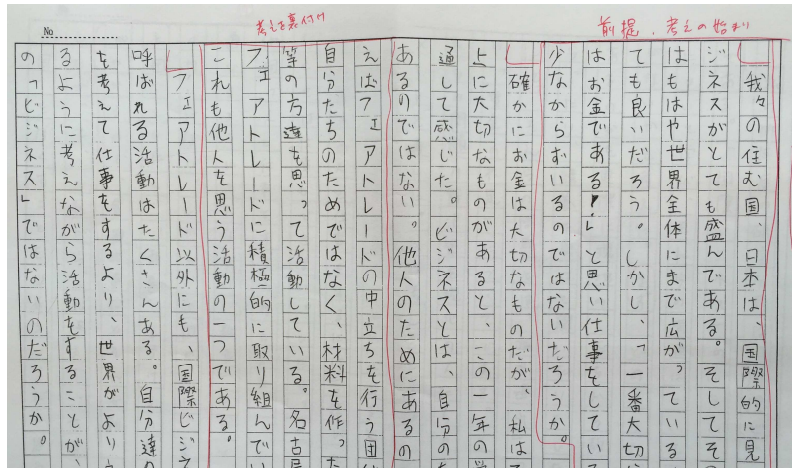 考えを裏付け
前提、考えの始まり
No
我々の住む国、日本は、国際的に見
ジネスがとても盛んである。そしてそ
はもはや世界全体にまで広がっている
ても良いだろう。しかし、「一番大切
はお金である!」と思い仕事をしてい
少なからずいるのではないだろうか。
確かにお金は大切なものだが、私は
上に大切なものがあると、この一年の学
通して感じた。ビジネスとは、自分のた
あるのではない。他人のためにあるの
えばフェアトレードの中立ちを行う団体
自分たちのためではなく、材料を作った
等の方達を思って活動している。名古屋
フェアトレードに積極的に取り組んでい
これも他人を思う活動の一つである。
フェアトレード以外にも、国際ビジネ
呼ばれる活動はたくさんある。自分達の
を考えて仕事をするより、世界がより
るように考えながら活動をすることが、
の「ビジネス」ではないのだろうか。